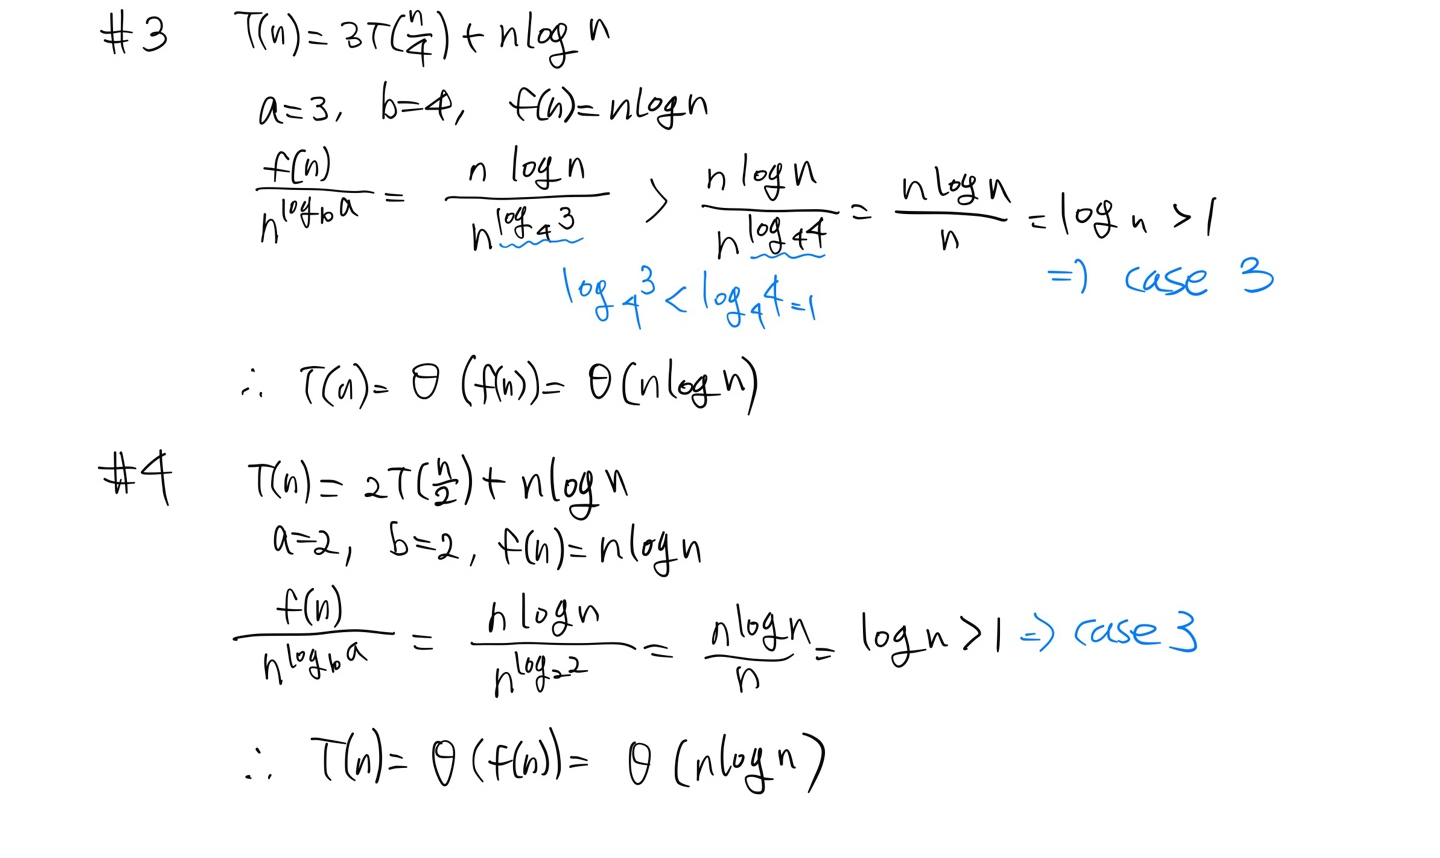 #3 T(n) = 3T(n/4) + nlog n
a=3, b=4, f(n)= nlogn
f(n)/n^(log_b a) = n log n/n^(log_4 3) > n log n/n^(log_4 4) = n log n/n = log n > 1
log_4 3 < log_4 4 = 1 => case 3
∴ T(n)= θ (f(n))= θ(nlogn)
#4 T(n)= 2T(n/2) + nlog n
a=2, b=2, f(n)= nlogn
f(n)/n^(log_b a) = n log n/n^(log_2 2) = n log n/n = log n > 1 => case 3
∴ T(n)= θ (f(n))= θ (nlog n)